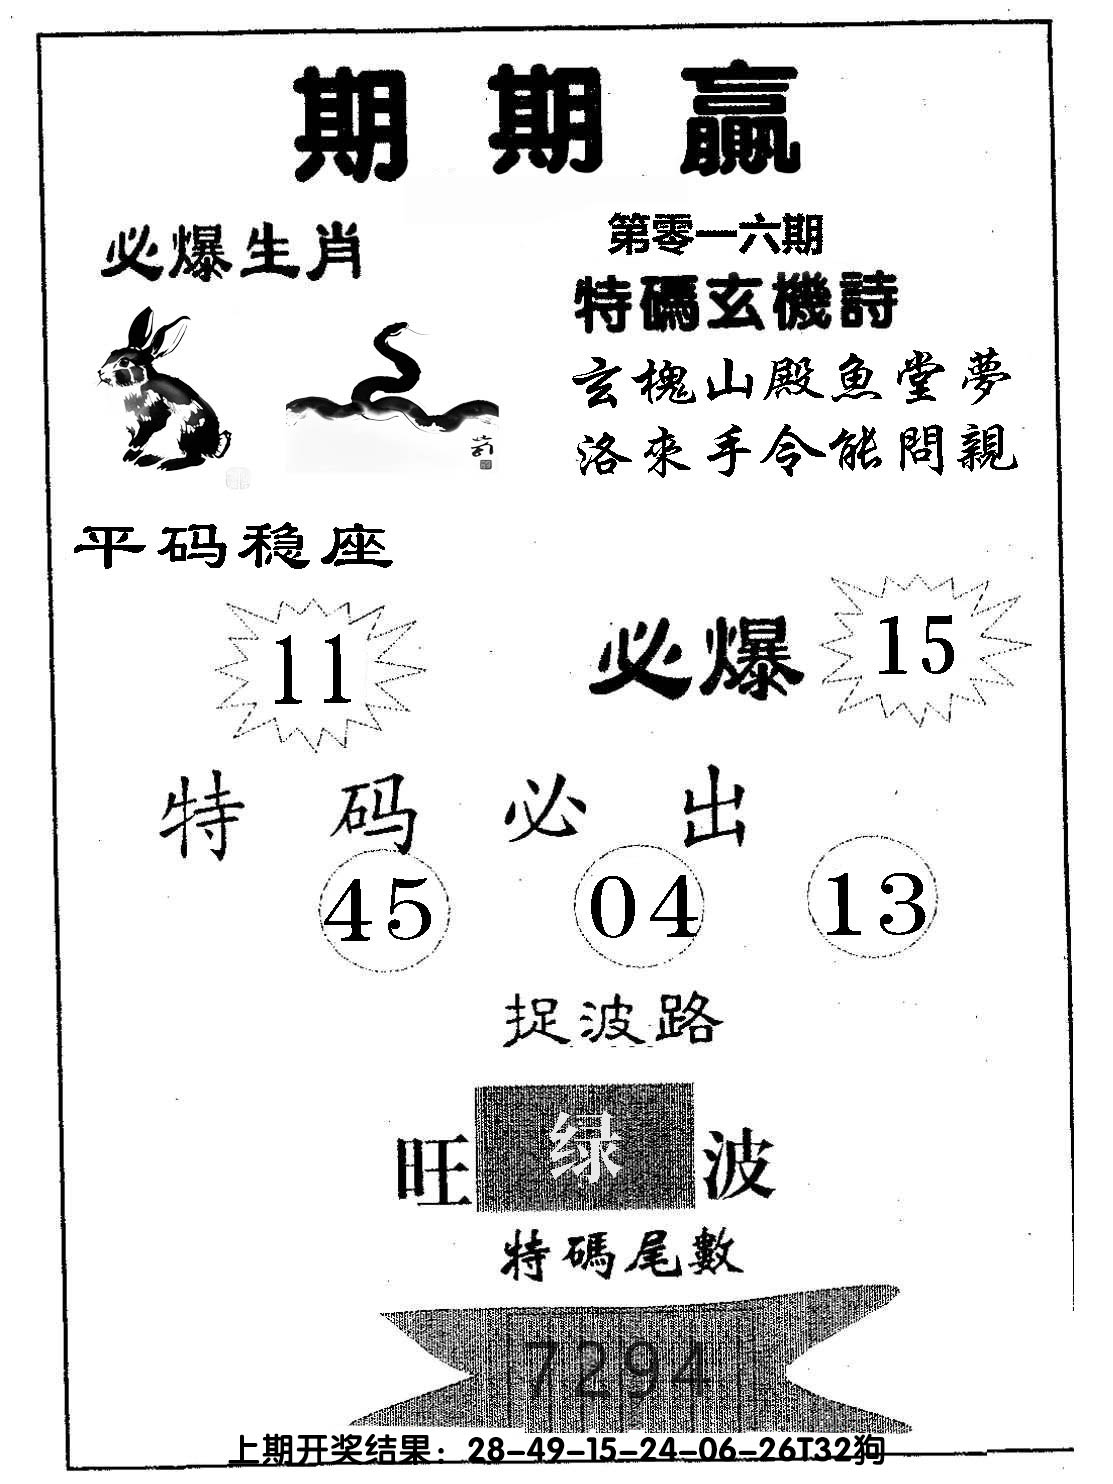 期期赢
必爆生肖
第零一六期
特碼玄機詩
玄槐山殿魚堂夢
洛來手令能問親
平码稳座
11
必爆
15
特码必出
45 04 13
捉波路
旺绿波
特碼尾數
7294
上期开奖结果：28-49-15-24-06-26T32狗